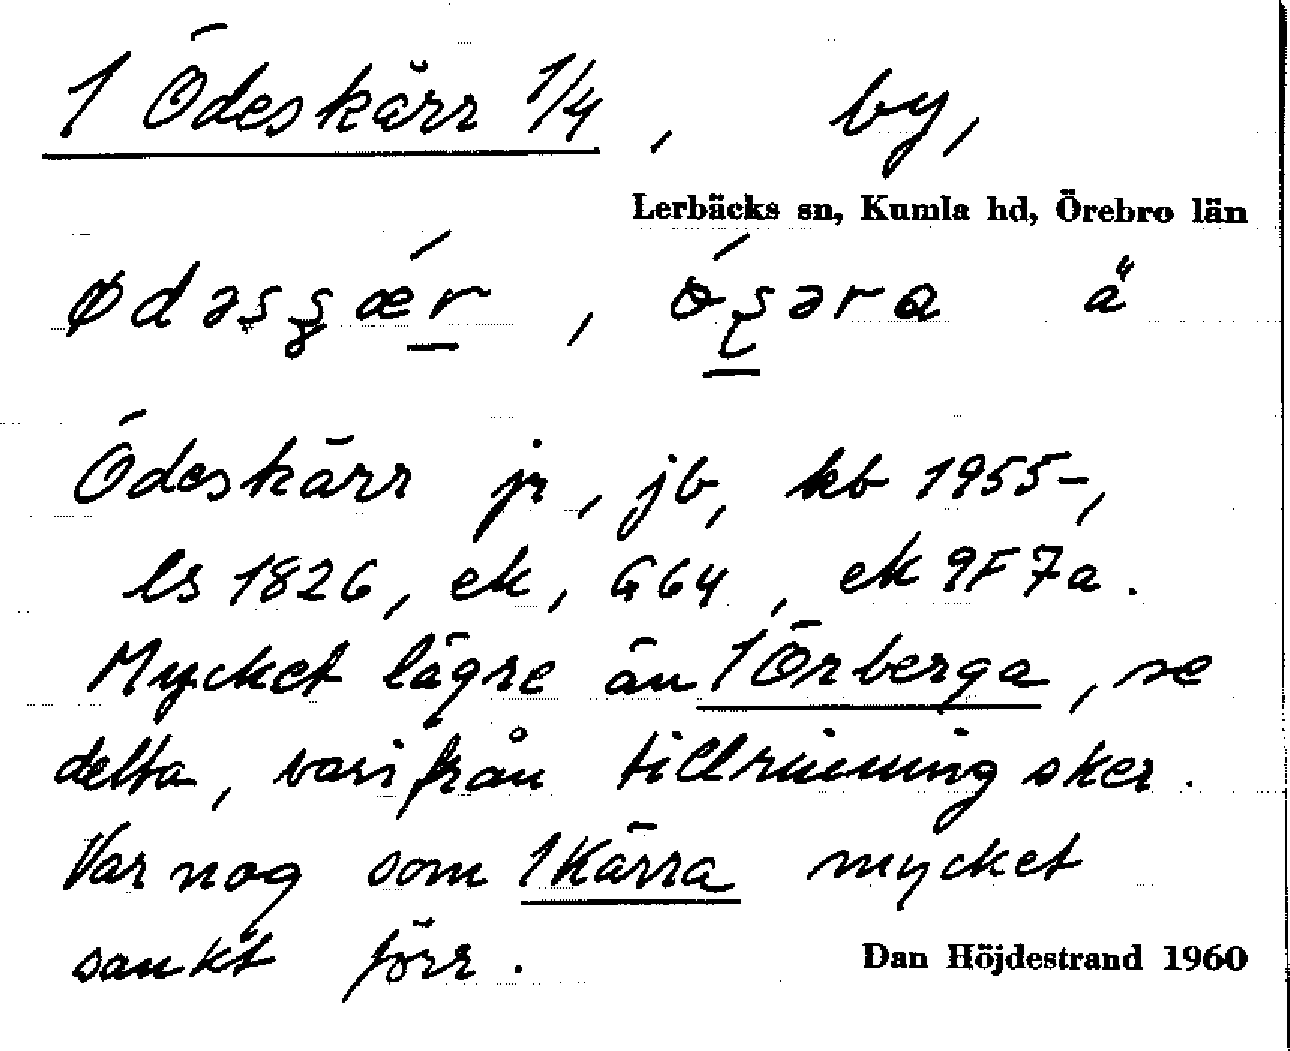 1 Ödeskärr 1/4, by,
Lerbäcks sn, Kumla hd, Örebro län
ä
Ödeskärr jr, jb, kb 1955-,
ls 1826, ek, G64, ek 9F7a.
Mycket lägre än 1 Örberga, se
detta, varifrån tillrinning sker.
Var nog som 1 Kärra mycket
sankt förr.
Dan Höjdestrand 1960